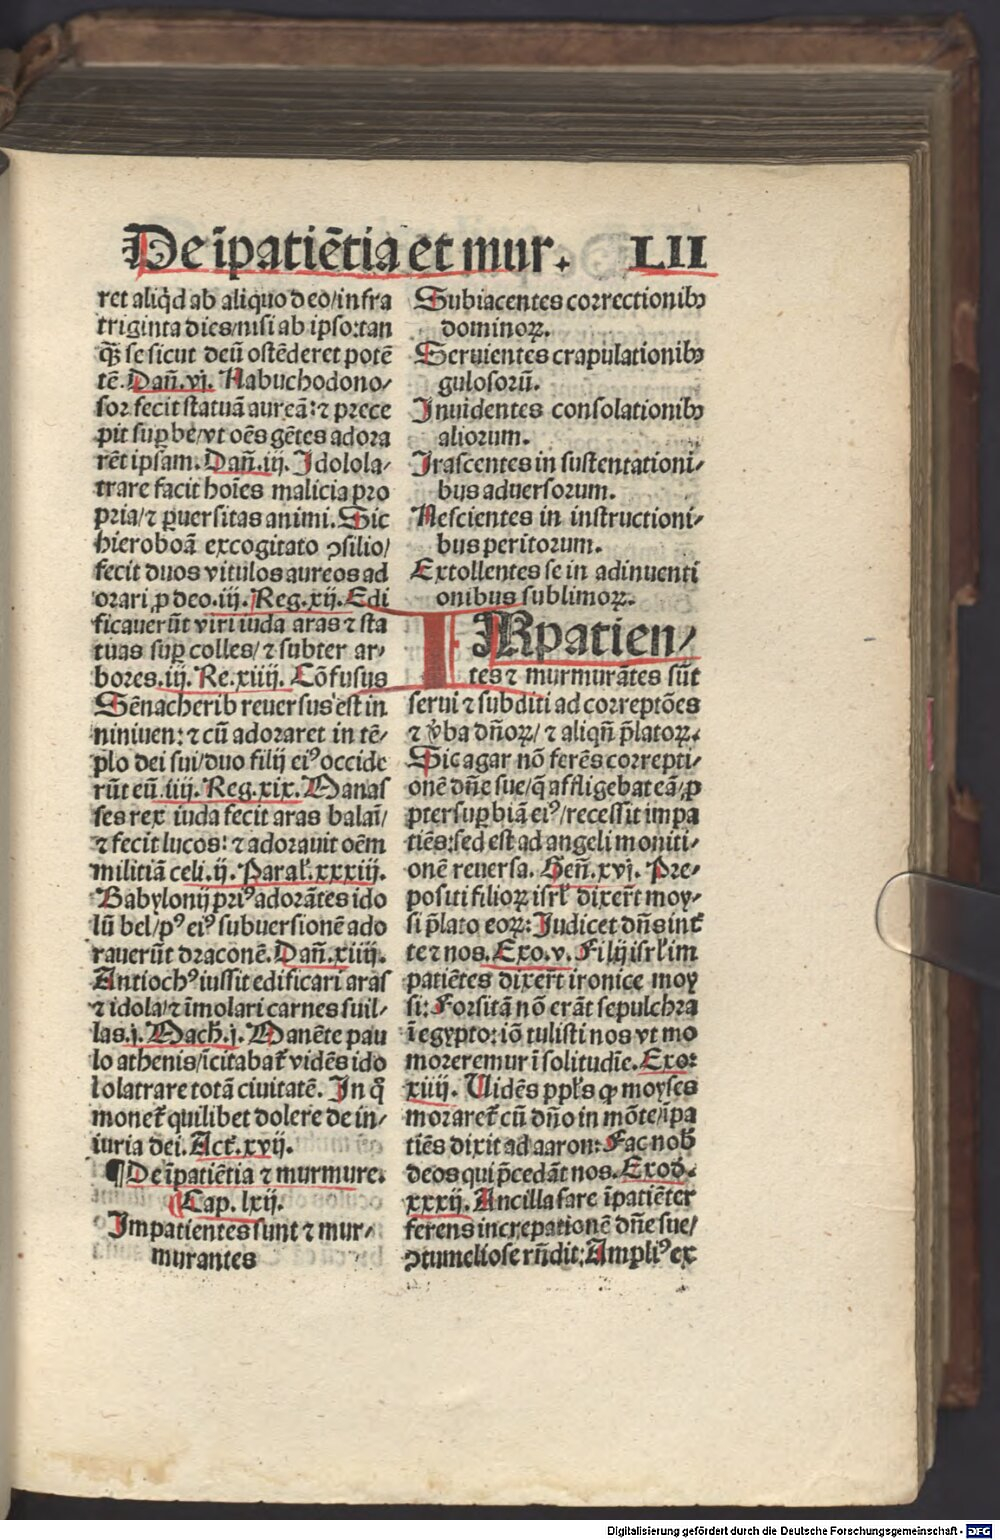 De īpatiētia et mur. LII
ret aliqd ab aliquo deo/infra
triginta dies/nisi ab ipso:tan
q̄ʒ se sicut deū ostēderet potē
tē. Dan̄.vj. Nabuchodono/
sor fecit statuā aureā:⁊ prece
pit sup̱be/vt oēs gētes adora
rēt ipsam. Dan̄.iij. Idolola/
trare facit hoīes malicia pro
pria/⁊ p̱uersitas animi. Sic
hieroboā excogitato ꝯsilio/
fecit duos vitulos aureos ad
orari ꝓ deo.iij. Reg.xij. Edi
ficauerūt viri iuda aras ⁊ sta
tuas sup̱ colles/⁊ subter ar/
bores.iij. Re.xiiij. Cōfusus
Sēnacherib reuersus est in
niniuen:⁊ cū adoraret in tē/
plo dei sui/duo filij eiꝰ occide
rūt eū.iiij. Reg.xix. Manas
ses rex iuda fecit aras balaī/
⁊ fecit lucos:⁊ adorauit oēm
militiā celi.ij. Paral̓.xxxiij.
Babylonij priꝰ adorātes ido
lū bel/pꝰ eiꝰ subuersionē ado
rauerūt draconē. Dan̄.xiiij.
Antiochꝰ iussit edificari aras
⁊ idola/⁊ īmolari carnes suil/
las.j. Mach̄.j. Manēte pau
lo athenis/īcitabat̄ vidēs ido
lolatrare totā ciuitatē. In q̊
monet̄ quilibet dolere de in/
iuria dei. Act̄.xvij.
¶De īpatiētia ⁊ murmure.
Cap. lxij.
Impatientes sunt ⁊ mur/
murantes
Subiacentes correctionibꝫ
dominoꝝ.
Seruientes crapulationibꝫ
gulosorū.
Inuidentes consolationibꝫ
aliorum.
Irascentes in sustentationi/
bus aduersorum.
Nescientes in instructioni/
bus peritorum.
Extollentes se in adinuenti
onibus sublimoꝝ.
IMpatien/
tes ⁊ murmurātes sūt
serui ⁊ subditi ad correptōes
⁊ v̓ba dn̄oꝝ/⁊ aliqn̄ p̄latoꝝ.
Sic agar nō ferēs correpti/
onē dn̄e sue/q̄ affligebat eā/ꝓ
pter sup̱biā eiꝰ/recessit impa
tiēs:sed est ad angeli moniti/
onē reuersa. Gen̄.xvj. Pre/
positi filioꝝ isrl̓ dixer̄t moy/
si p̄lato eoꝝ: Iudicet dn̄s int̄
te ⁊ nos. Exo.v. Filij isrl̓ im
patiētes dixer̄t ironice moy
si: Forsitā nō erāt sepulchra
ī egypto:iō tulisti nos vt mo
moreremur ī solitudīe. Exo:
xiiij. Uidēs ppl̓s ꝙ moyses
moraret̄ cū dn̄o in mōte/īpa
tiēs dixit ad aaron: Fac nob̄
deos qui p̄cedāt nos. Exod̄.
xxxij. Ancilla sare īpatiēter
ferens increpationē dn̄e sue/
ꝯtumeliose rn̄dit: Ampliꝰ ex
Digitalisierung gefördert durch die Deutsche Forschungsgemeinschaft - DFG